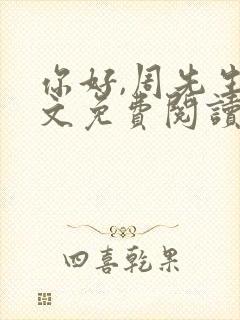 你好,周先生
文免費閱讀
四喜乾果